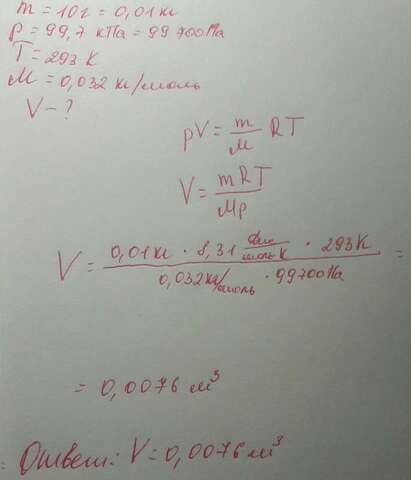 m = 10 г = 0,01 кг
p = 99,7 кПа = 99 700 Па
T = 293 K
M = 0,032 кг/моль
V - ?
pV = m/M RT
V = mRT/Mp
V = 0,01 кг · 8,31 Дж/моль К · 293 К / 0,032 кг/моль · 99700 Па =
= 0,0076 м³
Ответ: V = 0,0076 м³